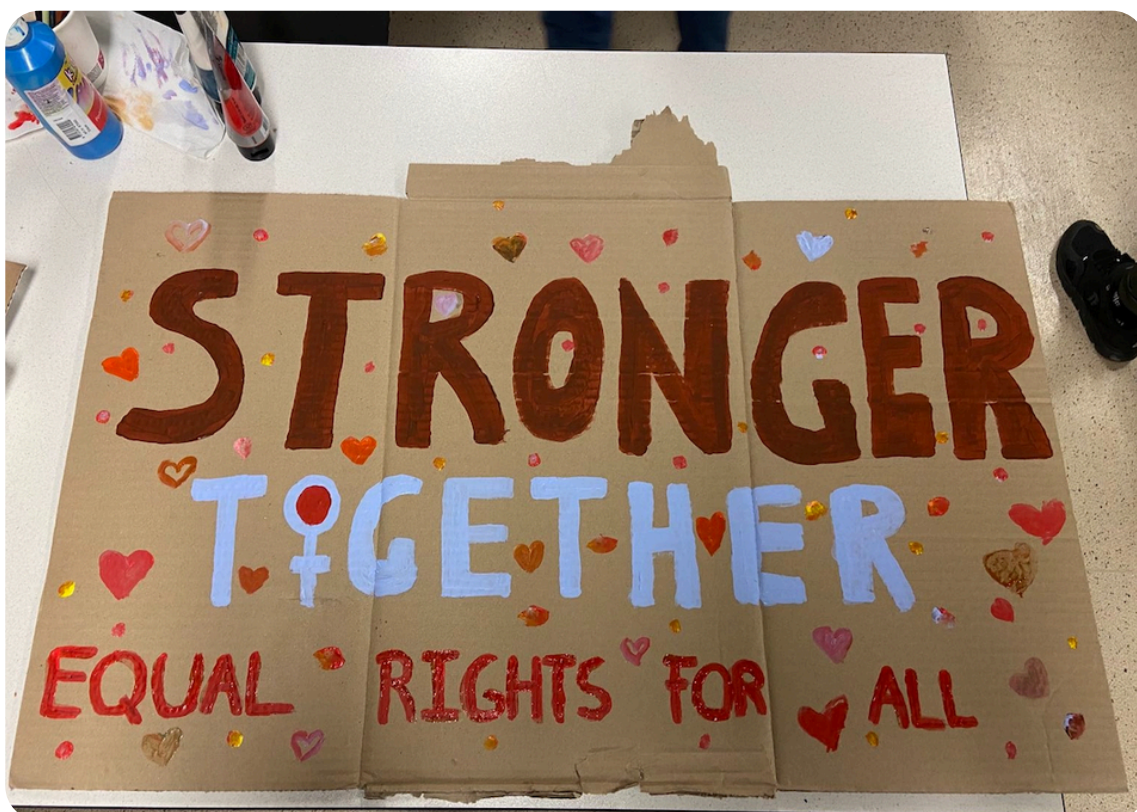 STRONGER
TOGETHER
EQUAL RIGHTS FOR ALL